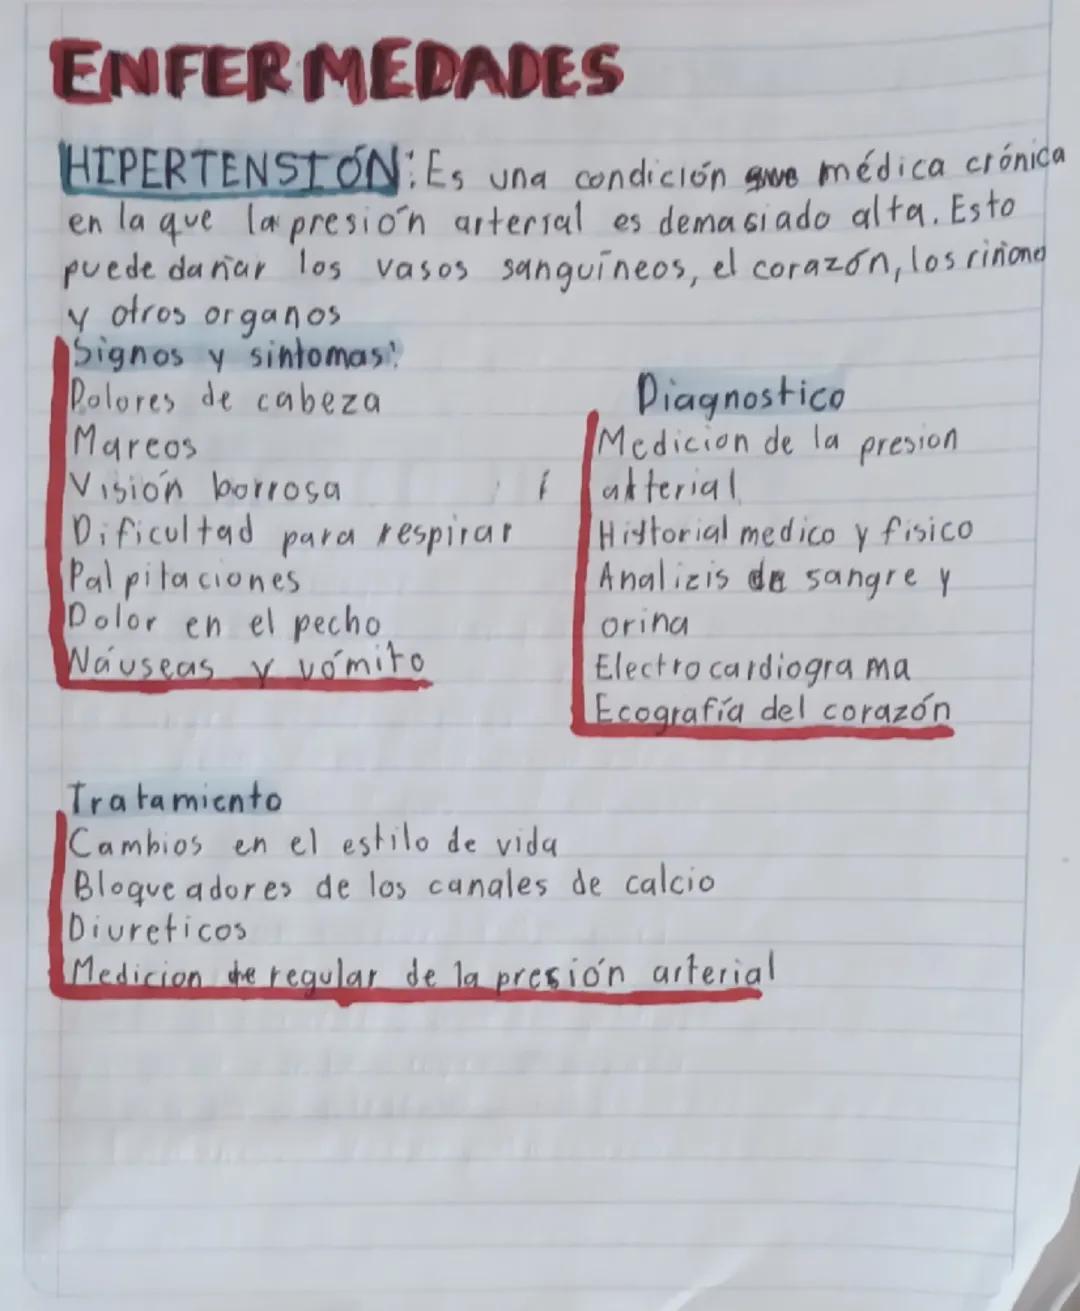 ENFERMEDADES
HIPERTENSIÓN: Es una condición médica crónica
en la que la presión arterial es demasiado alta. Esto
puede dañar los vasos sanguíneos, el corazón, los riñone
y otros organos
Signos y sintomas:
Dolores de cabeza
Mareos
Visión borrosa
Dificultad para respirar
Palpitaciones
Dolor en el pecho
Náuseas y vómito
Diagnostico
Medicion de la presion
arterial
Historial medico y fisico
Analizis de sangre y
orina
Electrocardiograma
Ecografía del corazón
Tratamiento
Cambios en el estilo de vida
Bloqueadores de los canales de calcio
Diureticos
Medicion regular de la presión arterial